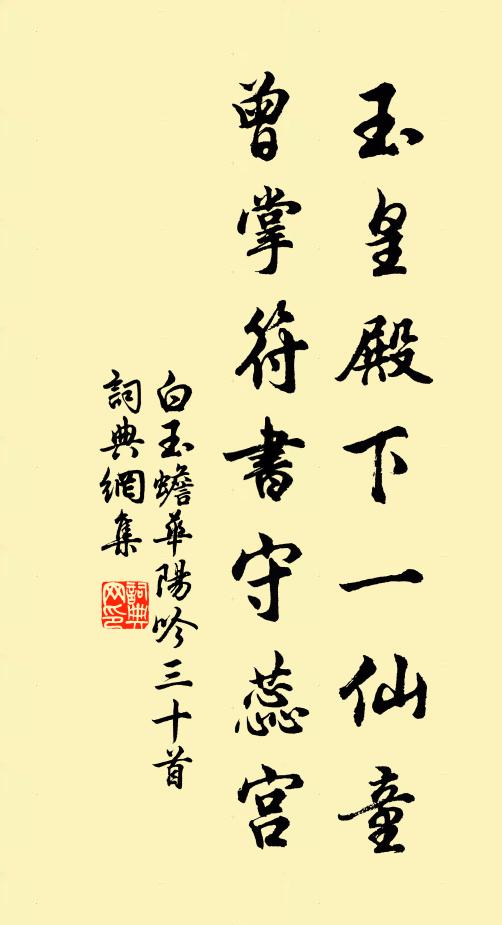 玉皇殿下一仙童
曾掌符書守蕊宮
白玉蟾華陽吟三十首
詞典網集
詞典網印